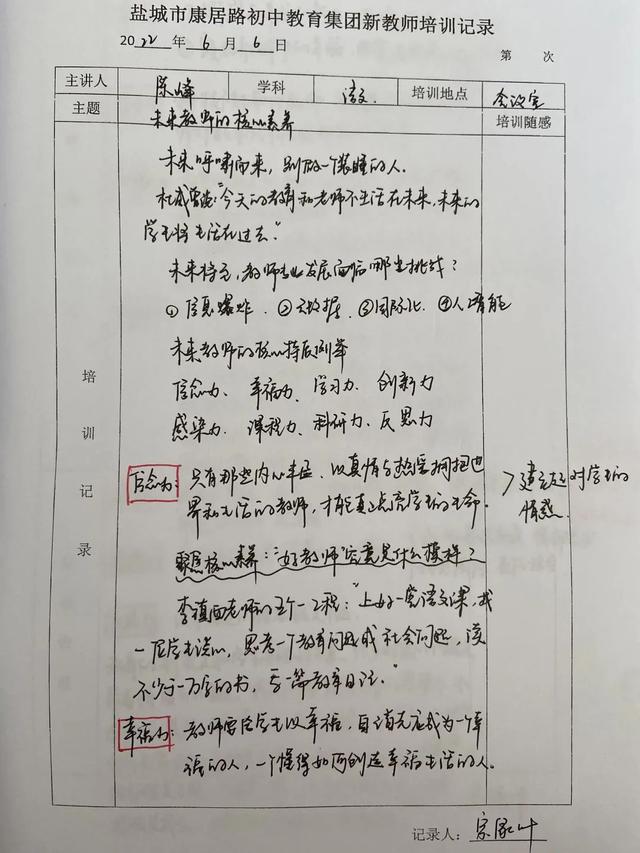 盐城市康居路初中教育集团新教师培训记录
2022 年 6 月 6 日
第 次
主讲人 陈峰 学科 语文 培训地点 会议室
主题 未来教师的核心素养 培训随感
培训记录
未来呼啸而来，别做一个装睡的人。
杜威曾说："今天的教育和老师不生活在未来，未来的
学生将生活在过去。"
未来将至，教师专业发展面临哪些挑战？
①信息爆炸．②大数据．③国际化．④人工智能
未来教师的核心特质例举
信念力、幸福力、学习力、创新力
感染力、课程力、科研力、反思力
信念力：只有那些内心丰盈、以真情与热爱拥抱世
界和生活的教师，才能真正点亮学生的生命．
建立起对学生的
情感．
聚焦核心素养："好教师"究竟是什么模样？
李镇西老师的五个一工程："上好一堂语文课，找
一位学生谈心，思考一个教育问题或社会问题，读
不少于一万字的书，写一篇教育日记．"
幸福力：教师要给学生以幸福，自己首先应成为一个幸
福的人，一个懂得如何创造幸福生活的人．
记录人：